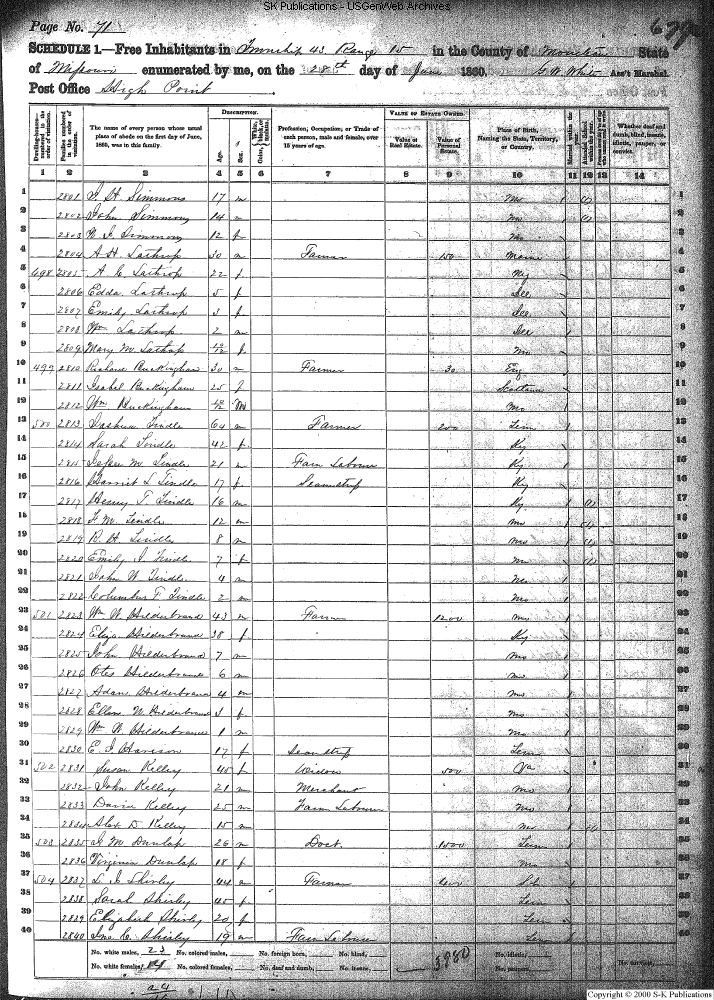 SK Publications - USGenWeb Archives
Page No. 71
SCHEDULE 1.—Free Inhabitants in Township 43 Range 15 in the County of Moniteau State
of Missouri enumerated by me, on the 28th day of June 1860. G. W. White Ass't Marshal.
Post Office High Point
Dwelling-houses—numbered in the order of visitation.
Families numbered in the order of visitation.
The name of every person whose usual place of abode on the first day of June, 1860, was in this family.
DESCRIPTION.
Age.
Sex.
Color, White, black, or mulatto.
Profession, Occupation, or Trade of each person, male and female, over 15 years of age.
VALUE OF ESTATE OWNED.
Value of Real Estate.
Value of Personal Estate.
Place of Birth, Naming the State, Territory, or Country.
Married within the year.
Attended School within the year.
Whether deaf and dumb, blind, insane, idiotic, pauper, or convict.
1 2 3 4 5 6 7 8 9 10 11 12 13 14
1 2801 Simmons 17 m Mo 1
2 2802 John Simmons 14 m Mo 2
3 2803 Simmons 12 f Mo 3
4 2804 A H Lathrop 30 m Farmer 150 4
5 498 2805 A C Lathrop 22 f Ky 5
6 2806 Edda Lathrop 5 f Ill 6
7 2807 Emily Lathrop 3 f Ill 7
8 2808 Wm Lathrop 2 m 8
9 2809 Mary M. Lathrop f Mo 9
10 499 2810 Richard Buckingham 30 m Farmer 30 Eng 10
11 2811 Isabel Buckingham 25 f Scotland 11
12 2812 Wm Buckingham 10/12 M Mo 12
13 500 2813 Joshua Tindle 64 m Farmer 200 Tenn 13
14 2814 Sarah Tindle 42 f Ky 14
15 2815 M Tindle 21 m Farm Laborer Ky 15
16 2816 Harriet L Tindle 17 f Seamstrep Ky 16
17 2817 Henry T Tindle 16 m Ky 17
18 2818 F. M. Tindle 12 m Mo 18
19 2819 R. H Tindle 8 m Mo 19
20 2820 Emily J Tindle 7 f Mo 20
21 2821 John W Tindle 4 m Mo 21
22 2822 Columbus T Tindle 2 m Mo 22
23 501 2823 Wm W Hilderbrand 43 m Farmer 1200 Mo 23
24 2824 Eliza Hilderbrand 38 f Ky 24
25 2825 John Hilderbrand 7 m Mo 25
26 2826 Otes Hilderbrand 6 m Mo 26
27 2827 Adam Hilderbrand 4 m Mo 27
28 2828 Ellen W. Hilderbrand 3 f Mo 28
29 2829 Wm W. Hilderbrand 1 m Mo 29
30 2830 E. J. Harrison 17 f Seamstrep Tenn 30
31 502 2831 Susan Kelley 45 f Widow 500 Va 31
32 2832 John Kelley 21 m Merchant Mo
33 2833 David Kelley 25 m Farm Laborer Mo
34 2834 Alex D. Kelley 15 m Mo
35 503 2835 J. M Dunlap 26 m Doct. 1500 Tenn
36 2836 Virginia Dunlap 18 f Mo
37 504 2837 L. J. Shirley 44 m Farmer 400
38 2838 Sarah Shirley 45 f Tenn
39 2839 Elizabeth Shirley 20 f Tenn
40 2840 Jno C. Shirley 19 m Farm Laborer Tenn
No. white males, 23 No. colored males, No. foreign born, No. blind, 3980 No. idiotic,
No. white females, 17 No. colored females, No. deaf and dumb, No. insane, No. paupers,
Copyright © 2000 S-K Publications